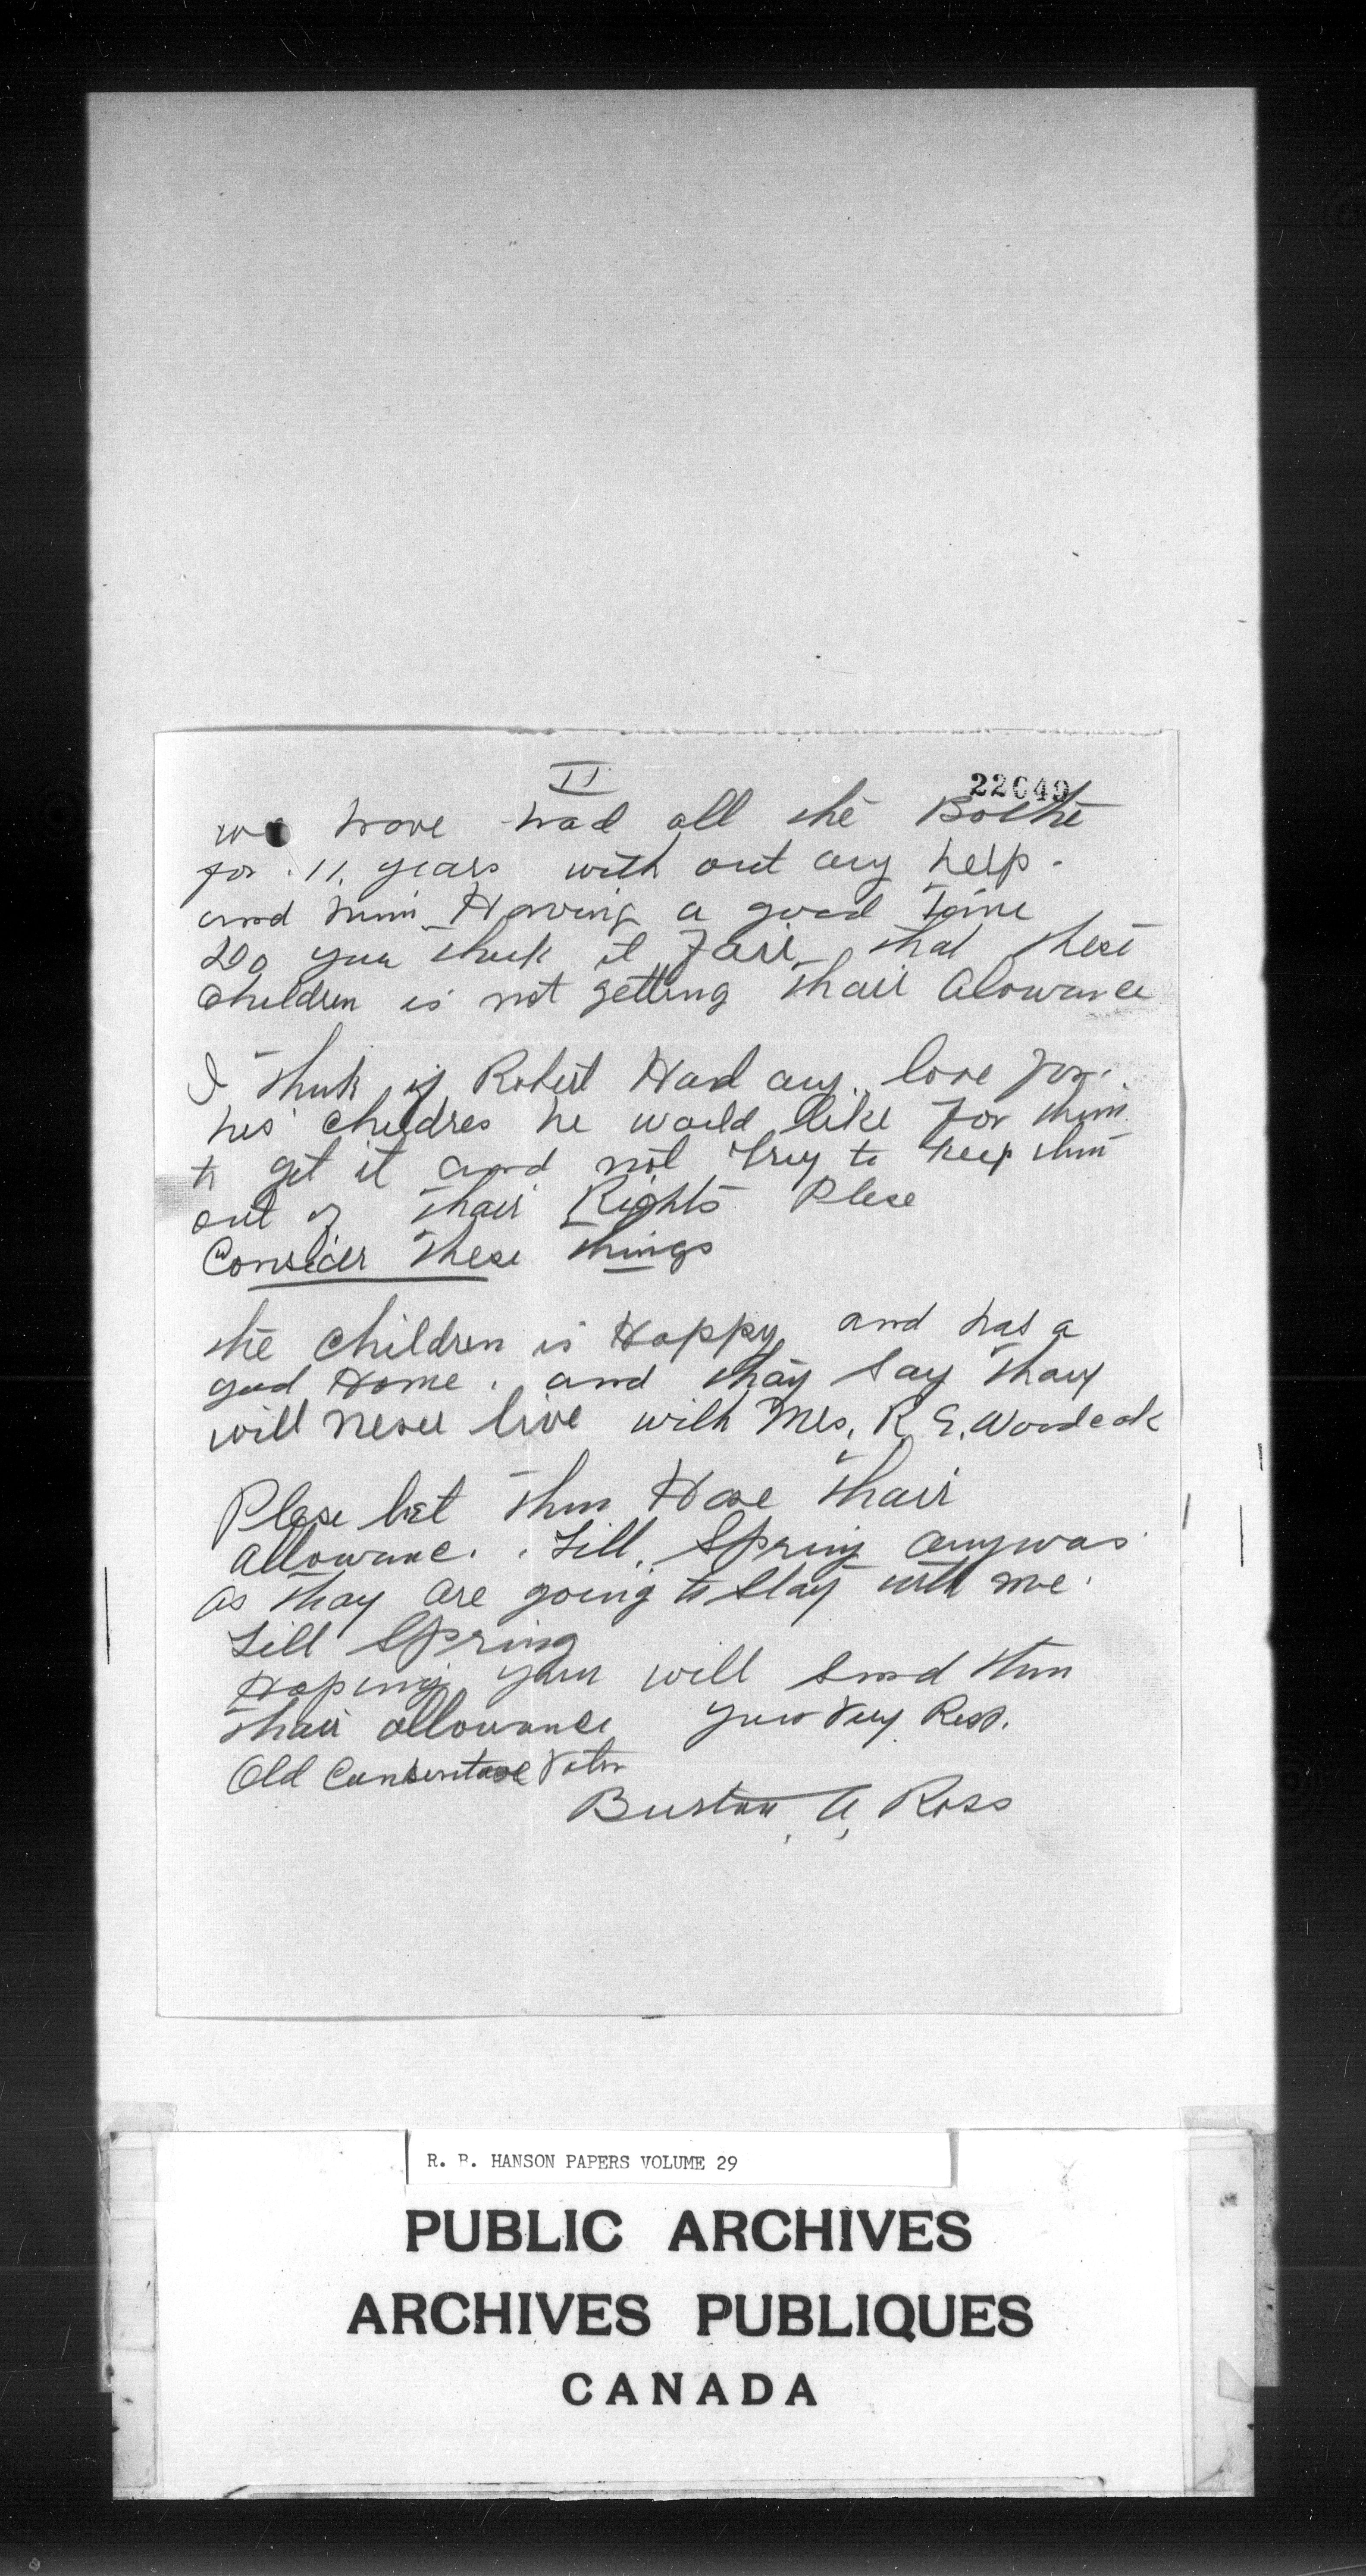 II
22649
we have had all the Bothe
for .11. years with out any help.
and him Having a good Time
Do you think it Fair that these
children is not getting Thair Alowance
I Think if Robert Had any love for
his childres he would like For them
to get it and not Try to keep them
out of Thair Rights Plese
Consider These things
the children is Happy and has a
good Home. and thay say Thay
will never live with Mrs. R. E. Woodcok
Plese let Them Have Thair
allowance. Till. Spring anyway
as Thay are going to Stay with me.
Till Spring
Hoping you will send them
Thair allowance yours Very Resp.
Old Voter
Burton A. Ross
R. B. HANSON PAPERS VOLUME 29
PUBLIC ARCHIVES
ARCHIVES PUBLIQUES
CANADA